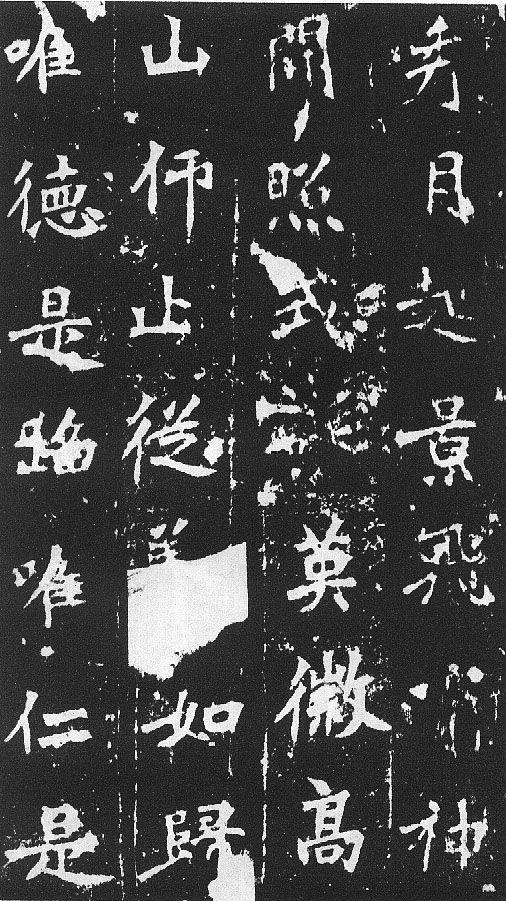 秀月起景飛神
開照式英徽高
山仰止從如歸
唯德是蹈唯仁是